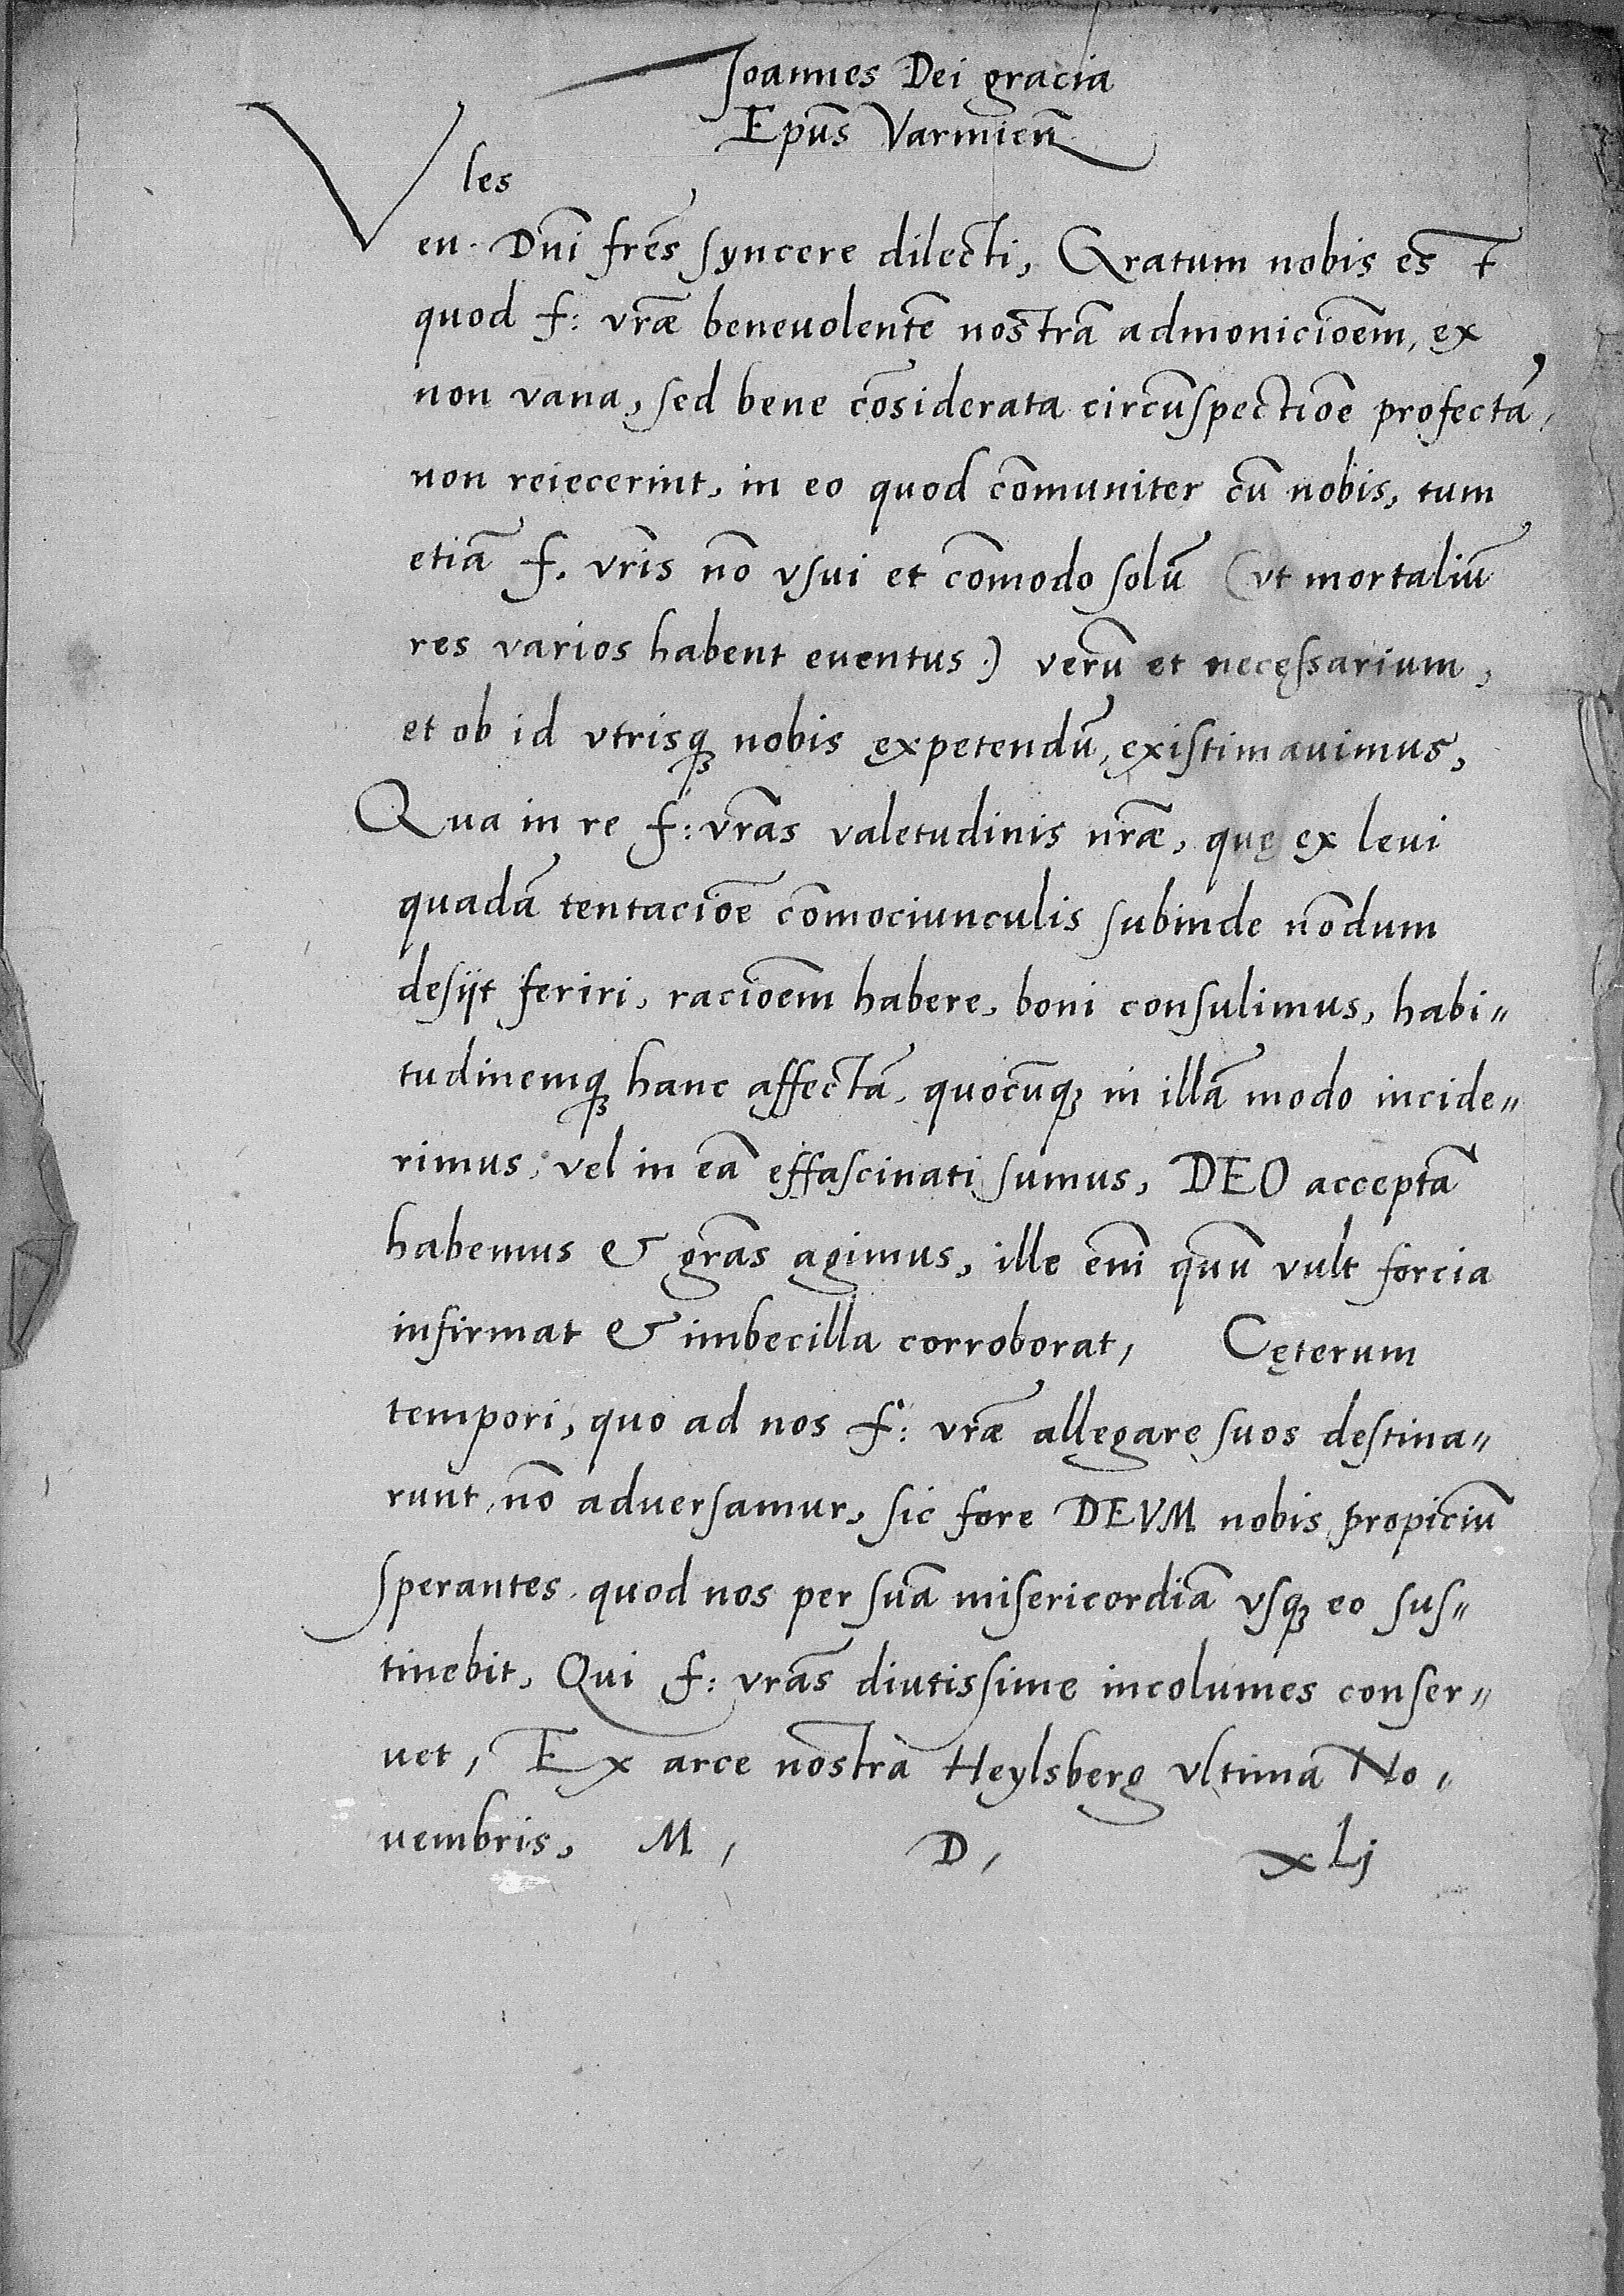 Joannes Dei gracia
Epūs Varmień
Vles
en. Dn̄i frēs syncere dilecti, Gratum nobis est
quod f: vrae̅ benevolente̅ nostra̅ admonicioe̅m, ex
non vana, sed bene co̅siderata circu̅spectioe̅ profecta̅,
non reiecerint, in eo quod co̅muniter cu̅ nobis, tum
etia̅ f. vr̅is no̅ vsui et co̅modo solu̅ (vt mortaliu̅
res varios habent euentus.) veru̅ et necęssarium,
et ob id vtrisqꝫ nobis ęxpetendu̅, ęxistimauimus,
Qua in re f: vr̅as valetudinis nr̅ae, quę ęx leui
quada̅ tentacioe̅ co̅mociunculis subinde no̅dum
desijt feriri, racioe̅m habere, boni consulimus, habi„
tudinemqꝫ hanc affecta̅, quocu̅qꝫ in illa̅ modo incide„
rimus, vel in ea̅ effascinati sumus, DEO accepta̅
habemus & gr̅as agimus, ille en̅i quu̅ vult forcia
infirmat & imbecilla corroborat, Cęterum
tempori, quo ad nos f: vr̅ae allegare suos destina„
runt, no̅ aduersamur, sic fore DEVM nobis propiciu̅
sperantes, quod nos per sua̅ misericordia̅ vsqꝫ eo sus„
tinebit, Qui f: vr̅as diutissime incolumes conser„
uet, Ex arce nostra Heylsberg vltima No„
uembris, M, D, xLj